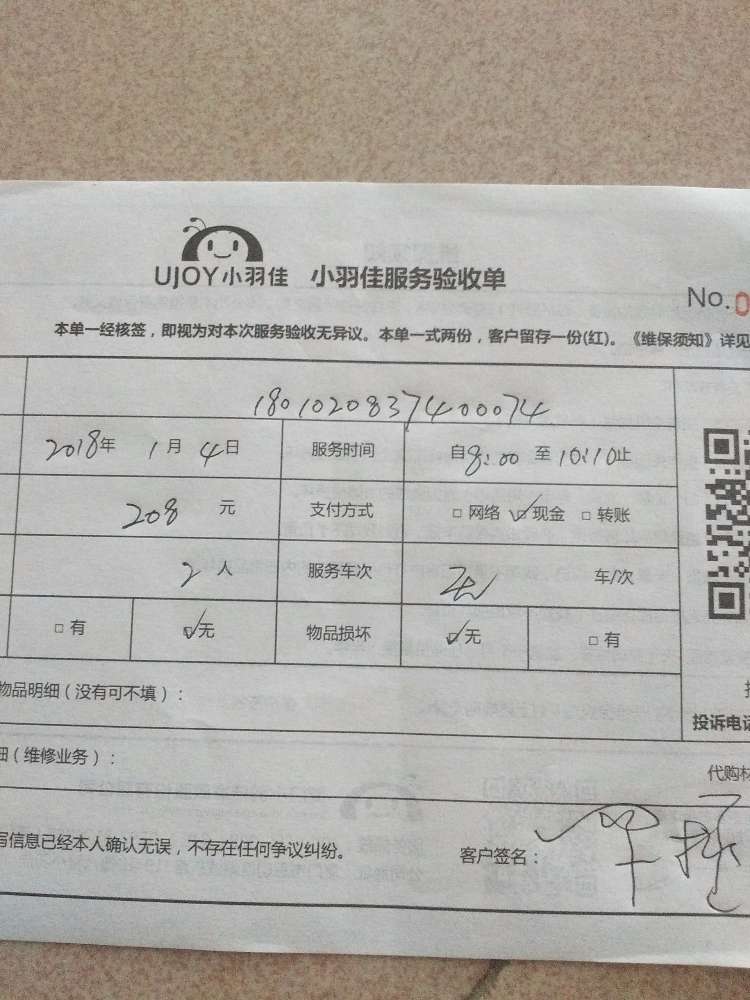 UJOY小羽佳 小羽佳服务验收单
No.0
本单一经核签，即视为对本次服务验收无异议。本单一式两份，客户留存一份(红)。《维保须知》详见
1801020837400074
2018年 1月 4日 服务时间 自8:00 至 10:10止
208 元 支付方式 □ 网络 ☑现金 □ 转账
2 人 服务车次 车/次
□ 有 ☑无 物品损坏 ☑无 □ 有
物品明细（没有可不填）：
投诉电话
细（维修业务）：
代购材
写信息已经本人确认无误，不存在任何争议纠纷。 客户签名：